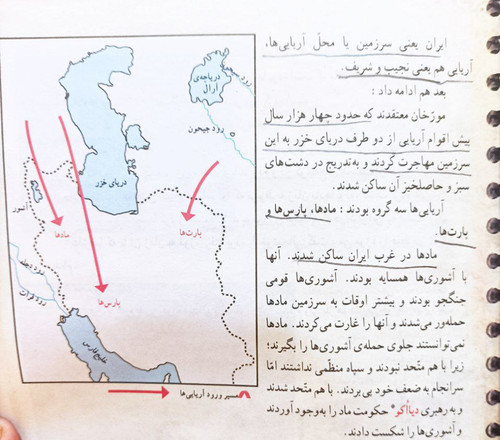 ایران یعنی سرزمین یا محلّ آریایی‌ها،
آریایی هم یعنی نجیب و شریف.
بعد هم ادامه داد :
مورّخان معتقدند که حدود چهار هزار سال
پیش اقوام آریایی از دو طرف دریای خزر به این
سرزمین مهاجرت کردند و به‌تدریج در دشت‌های
سبز و حاصلخیز آن ساکن شدند.
آریایی‌ها سه گروه بودند : مادها، پارس‌ها و
پارت‌ها.
مادها در غرب ایران ساکن شدند. آنها
با آشوری‌ها همسایه بودند. آشوری‌ها قومی
جنگجو بودند و بیشتر اوقات به سرزمین مادها
حمله‌ور می‌شدند و آنها را غارت می‌کردند. مادها
نمی‌توانستند جلوی حمله‌ی آشوری‌ها را بگیرند؛
زیرا با هم متّحد نبودند و سپاه منظّمی نداشتند امّا
سرانجام به ضعف خود پی بردند. با هم متّحد شدند
و به رهبری دیااُکو* حکومت ماد را به‌وجود آوردند
و آشوری‌ها را شکست دادند.
دریاچه‌ی
آرال
رود
رود جیحون
دریای خزر
آشور
مادها
پارت‌ها
پارس‌ها
رود دجله
رود فرات
خلیج فارس
مسیر ورود آریایی‌ها